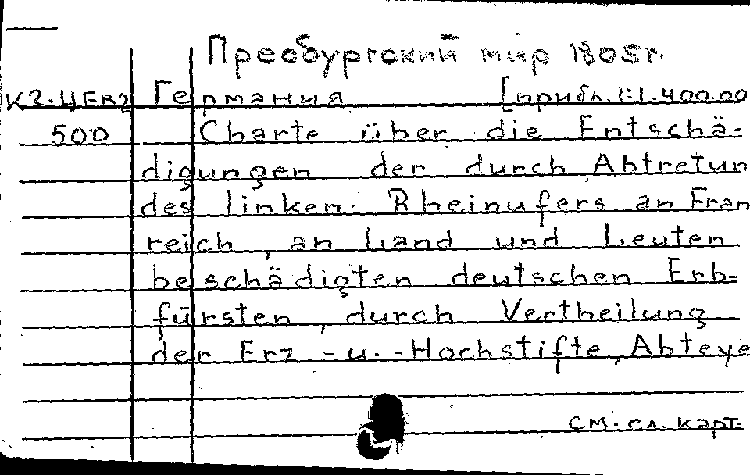 Пресбургский мир 1805г.
К2.ЦЕв2 Германия [прибл. 1:1.400.00
500 Charte über die Entschä-
digungen der durch Abtretun
des linken Rheinufers an Fran
reich, an Land und Leuten
beschädigten deutschen Erb-
fürsten, durch Vertheilung
der Erz-u.-Hochstifte, Abteye
см. сл. карт.